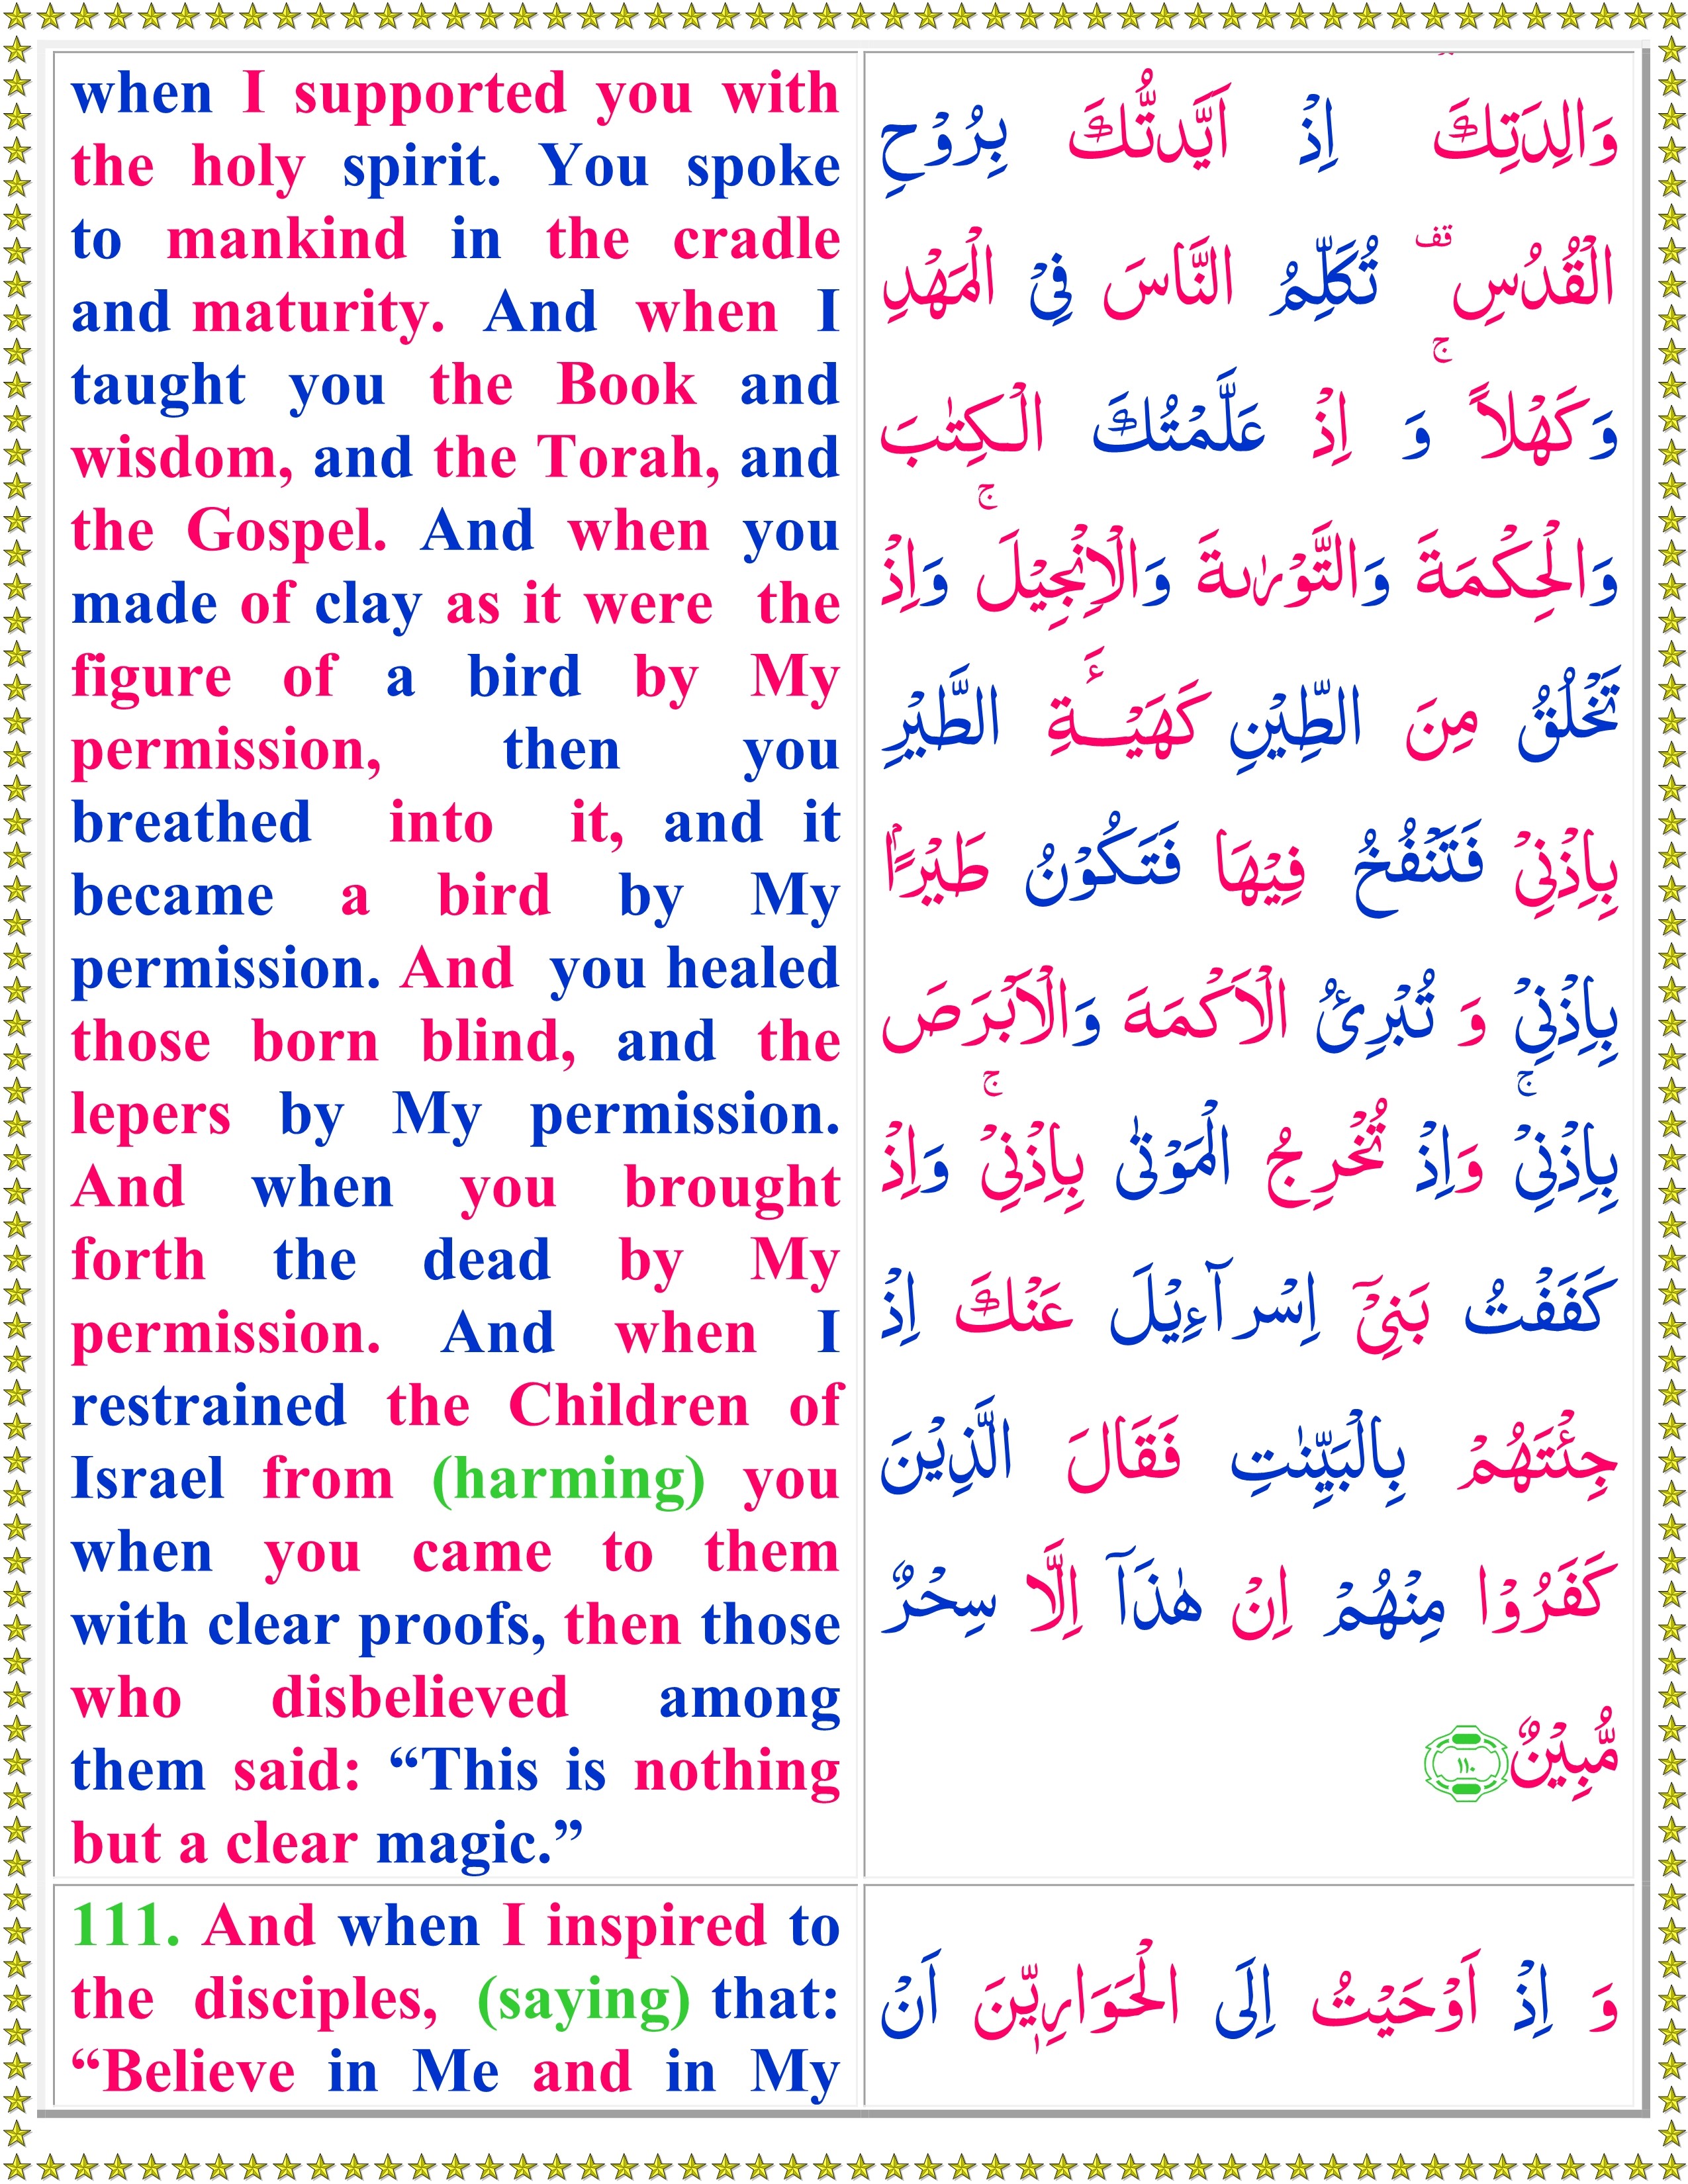 when I supported you with
the holy spirit. You spoke
to mankind in the cradle
and maturity. And when I
taught you the Book and
wisdom, and the Torah, and
the Gospel. And when you
made of clay as it were the
figure of a bird by My
permission, then you
breathed into it, and it
became a bird by My
permission. And you healed
those born blind, and the
lepers by My permission.
And when you brought
forth the dead by My
permission. And when I
restrained the Children of
Israel from (harming) you
when you came to them
with clear proofs, then those
who disbelieved among
them said: “This is nothing
but a clear magic.”
وَالِدَتِكَ ۘ اِذْ اَيَّدتُّكَ بِرُوْحِ
الْقُدُسِ ۣ تُكَلِّمُ النَّاسَ فِىْ الْمَهْدِ
وَكَهْلًا ۚ وَ اِذْ عَلَّمْتُكَ الْـكِتٰبَ
وَالْحِكْمَةَ وَالتَّوْرٰٮةَ وَالْاِنْجِيْلَ ۚ وَاِذْ
تَخْلُقُ مِنَ الطِّيْنِ كَهَيْــٴَــةِ الطَّيْرِ
بِاِذْنِىْ فَتَنْفُخُ فِيْهَا فَتَكُوْنُ طَيْرًۢا
بِاِذْنِىْ وَ تُبْرِئُ الْاَكْمَهَ وَالْاَبْرَصَ
بِاِذْنِىْ ۚ وَاِذْ تُخْرِجُ الْمَوْتٰى بِاِذْنِىْ ۚ وَاِذْ
كَفَفْتُ بَنِىْۤ اِسْرآءِيْلَ عَنْكَ اِذْ
جِئْتَهُمْ بِالْبَيِّنٰتِ فَقَالَ الَّذِيْنَ
كَفَرُوْا مِنْهُمْ اِنْ هٰذَاۤ اِلَّا سِحْرٌ
مُّبِيْنٌ‏ ﴿۱۱۰﴾
111. And when I inspired to
the disciples, (saying) that:
“Believe in Me and in My
وَ اِذْ اَوْحَيْتُ اِلَى الْحَوَارِيّٖنَ اَنْ